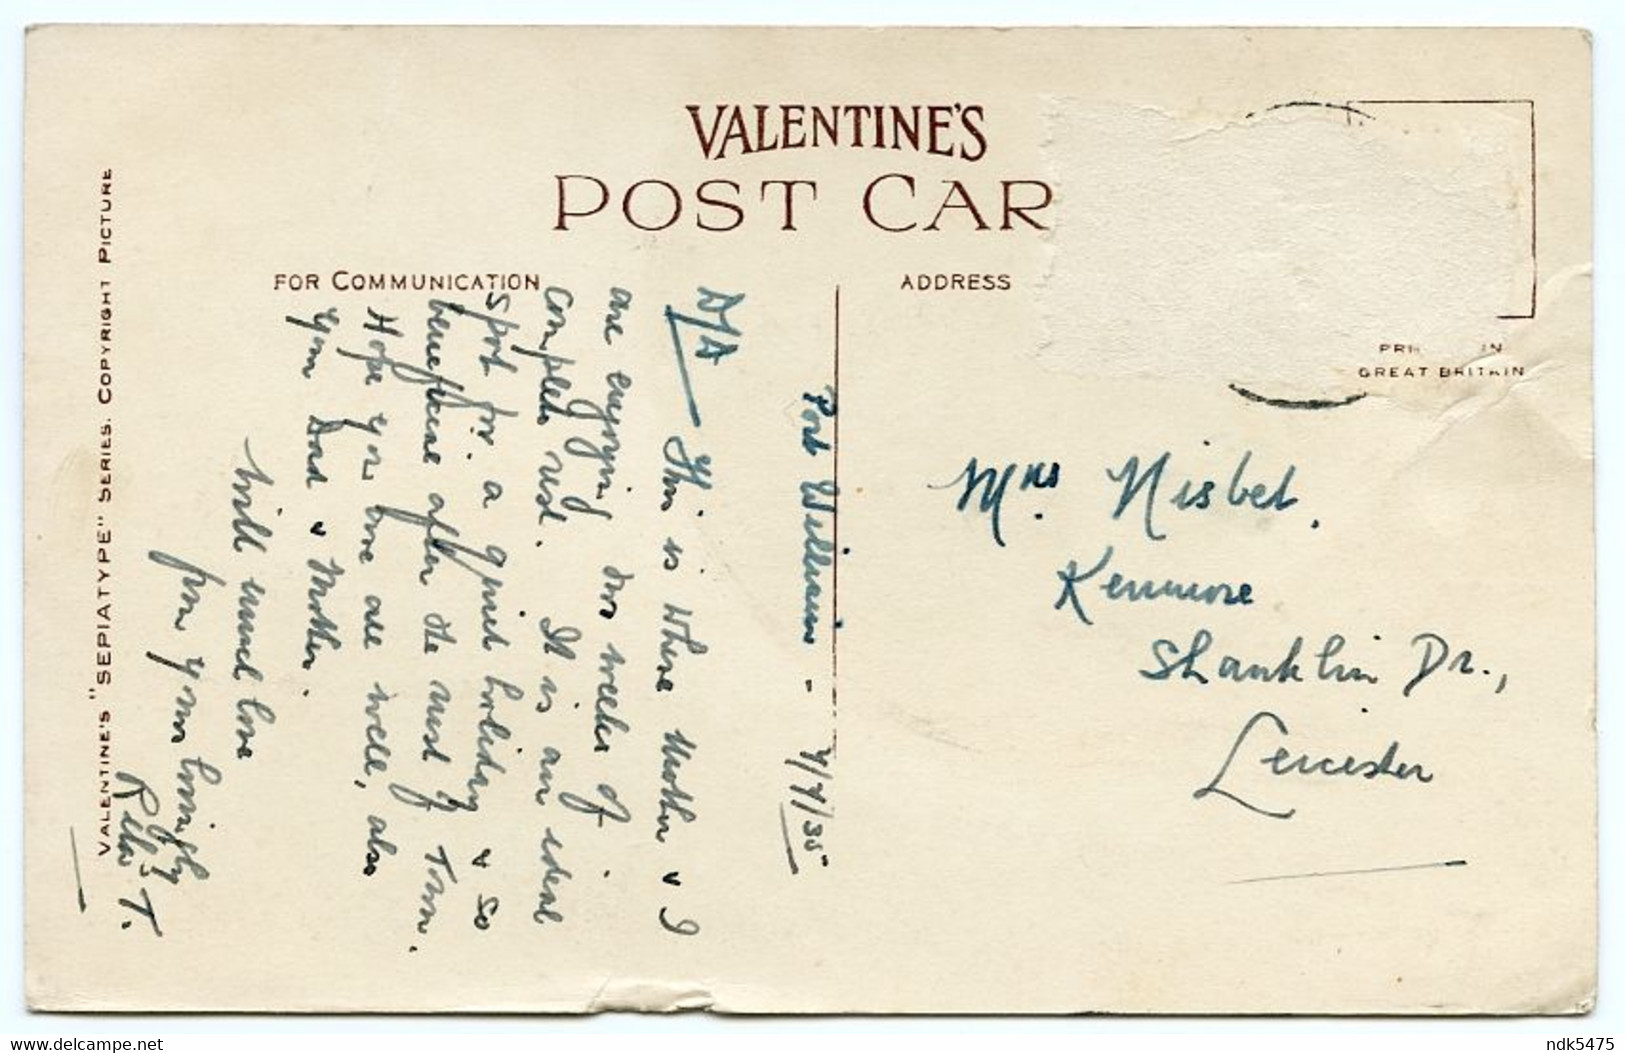 VALENTINE'S
POST CAR
FOR COMMUNICATION
ADDRESS
PRI IN
GREAT BRITAIN
VALENTINE'S "SEPIATYPE" SERIES. COPYRIGHT PICTURE
Port William - 4/7/35
D/A
This is where Mother & I
are enjoying two weeks of
complete rest. It is an ideal
spot for a quiet holiday & so
beneficial after the rush of Town.
Hope you two are well, also
your Dad & Mother.
With much love
from yours lovingly
Rella T.
Mrs Nisbet.
Kenmore
Shanklin Dr.,
Leicester
delcampe.net
ndk5475